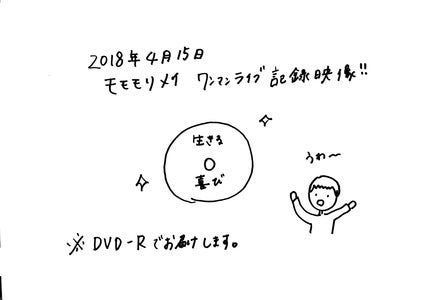 2018年4月15日
モモモリメイ ワンマンライブ記録映像!!
生きる
喜び
うわ〜
※DVD-Rでお届けします。